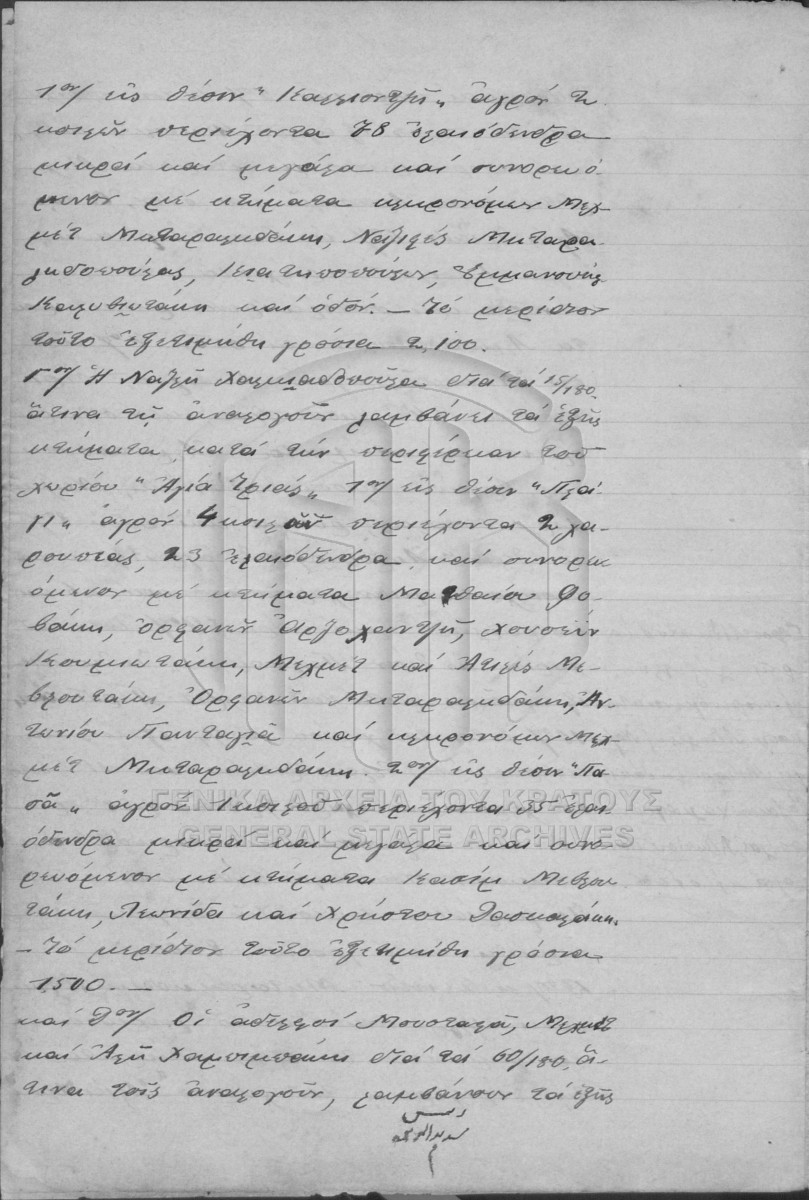 1ον εἰς θέσιν "Καμιοντζῆ" ἀγρόν 2
κοιλῶν περιέχοντα 78 ἐλαιόδενδρα
μικρά καί μεγάλα καί συνορευό
μενον μέ κτήματα κληρονόμων Μεχ
μέτ Μπαταραλιδάκη, Ναζιφές Μπαταρα
λιδοπούλας, Ἐμμανουήλ
καί ὁδόν. — Τό μερίδιον
τοῦτο ἐξετιμήθη γρόσια 2,100.
Γον Ἡ Ναζλῆ διά τά 15/180
ἅτινα τῇ ἀναλογοῦν λαμβάνει τά ἑξῆς
κτήματα κατά τήν περιφέρειαν τοῦ
χωρίου "Ἁγία Τριάς" 1ον εἰς θέσιν "Πλαΐ
γι" ἀγρόν 4 κοιλῶν περιέχοντα 2 χα-
ρουπέας, 23 ἐλαιόδενδρα καί συνορευ
όμενον μέ κτήματα Ματθαίου Φο-
βάκη, ὀρφανῶν Χουσεΐν
Μεχμέτ καί Ἀτιφές Με-
βλουτάκη, Ὀρφανῶν Μπαταραλιδάκη, Ἀν-
τωνίου Πανταγιᾶ καί κληρονόμων Μεχ
μέτ Μπαταραλιδάκη. 2ον εἰς θέσιν "Πα
σᾶ" ἀγρόν 1 κοιλοῦ περιέχοντα 35 ἐλαι
όδενδρα μικρά καί μεγάλα καί συνο
ρευόμενον μέ κτήματα Κασίμ Μεβλου
τάκη, Λεωνίδα καί Χρήστου Δασκαλάκη.
— Τό μερίδιον τοῦτο ἐξετιμήθη γρόσια
1500. —
καί Δον Οἱ ἀδελφοί Μουσταφᾶ, Μεχμέτ
καί Ἀλῆ διά τά 60/180, ἅ-
τινα τοῖς ἀναλογοῦν, λαμβάνουν τά ἑξῆς
ΓΕΝΙΚΑ ΑΡΧΕΙΑ ΤΟΥ ΚΡΑΤΟΥΣ
GENERAL STATE ARCHIVES